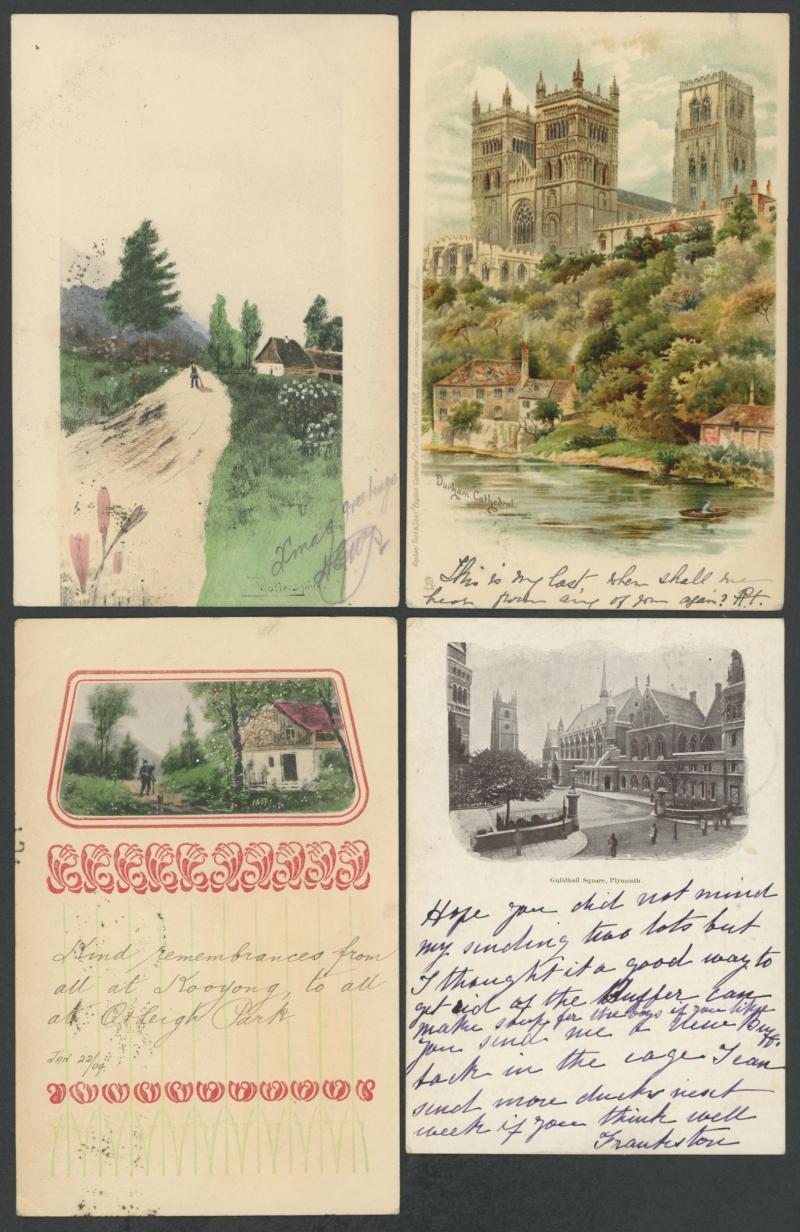 Xmas greetings
Durham Cathedral
This is my last, when shall we
hear from any of you again?
1657
Kind remembrances from
all at Kooyong, to all
at Otleigh Park
JAN 22/09
Guildhall Square, Plymouth.
Hope you did not mind
my sending two lots but
I thought it a good way to
get rid of the Buffer can
make soup for the boys if you like
you send me a new
back in the cage I can
send more ducks next
week if you think well
Frankston